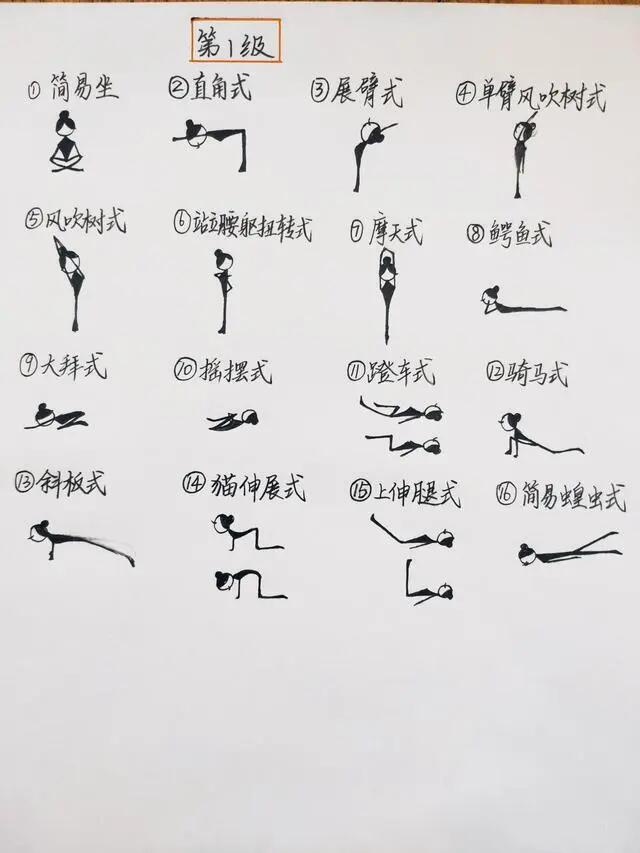 第1级
①简易坐 ②直角式 ③展臂式 ④单臂风吹树式
⑤风吹树式 ⑥站立腰躯扭转式 ⑦摩天式 ⑧鳄鱼式
⑨大拜式 ⑩摇摆式 ⑪蹬车式 ⑫骑马式
⑬斜板式 ⑭猫伸展式 ⑮上伸腿式 ⑯简易蝗虫式